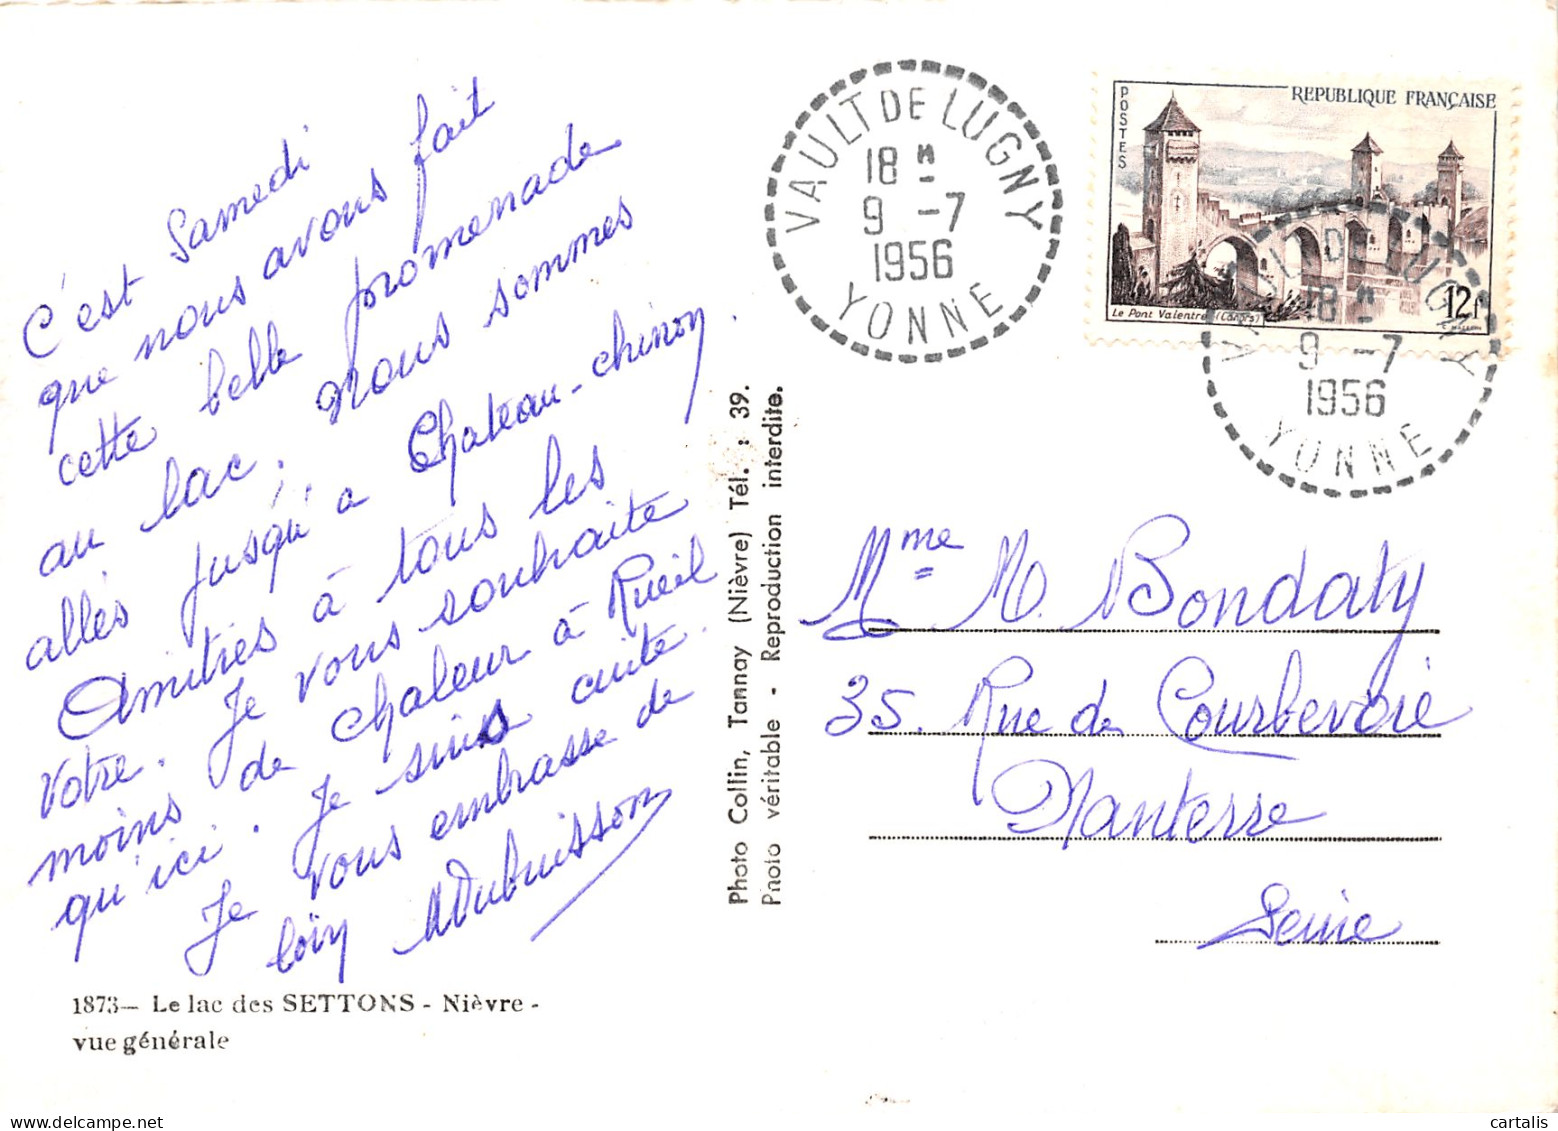 C'est Samedi
que nous avons fait
cette belle promenade
au lac. Nous sommes
allés jusqu'à Chateau-chinon.
Amitiés à tous les
votre. Je vous souhaite
moins de chaleur à Rueil
qu'ici. Je suis cuite.
Je vous embrasse de
loin
MDubuisson
1873— Le lac des SETTONS - Nièvre -
vue générale
Photo Collin, Tannay (Nièvre) Tél. : 39.
Photo véritable - Reproduction interdite.
VAULT DE LUGNY
18 H
9 -7
1956
YONNE
POSTES
REPUBLIQUE FRANÇAISE
Le Pont Valentré (Cahors)
12f
VAULT DE LUGNY
18 H
9 -7
1956
YONNE
Mme M. Bondaty
35. Rue de Courbevoie
Nanterre
Seine
cartalis